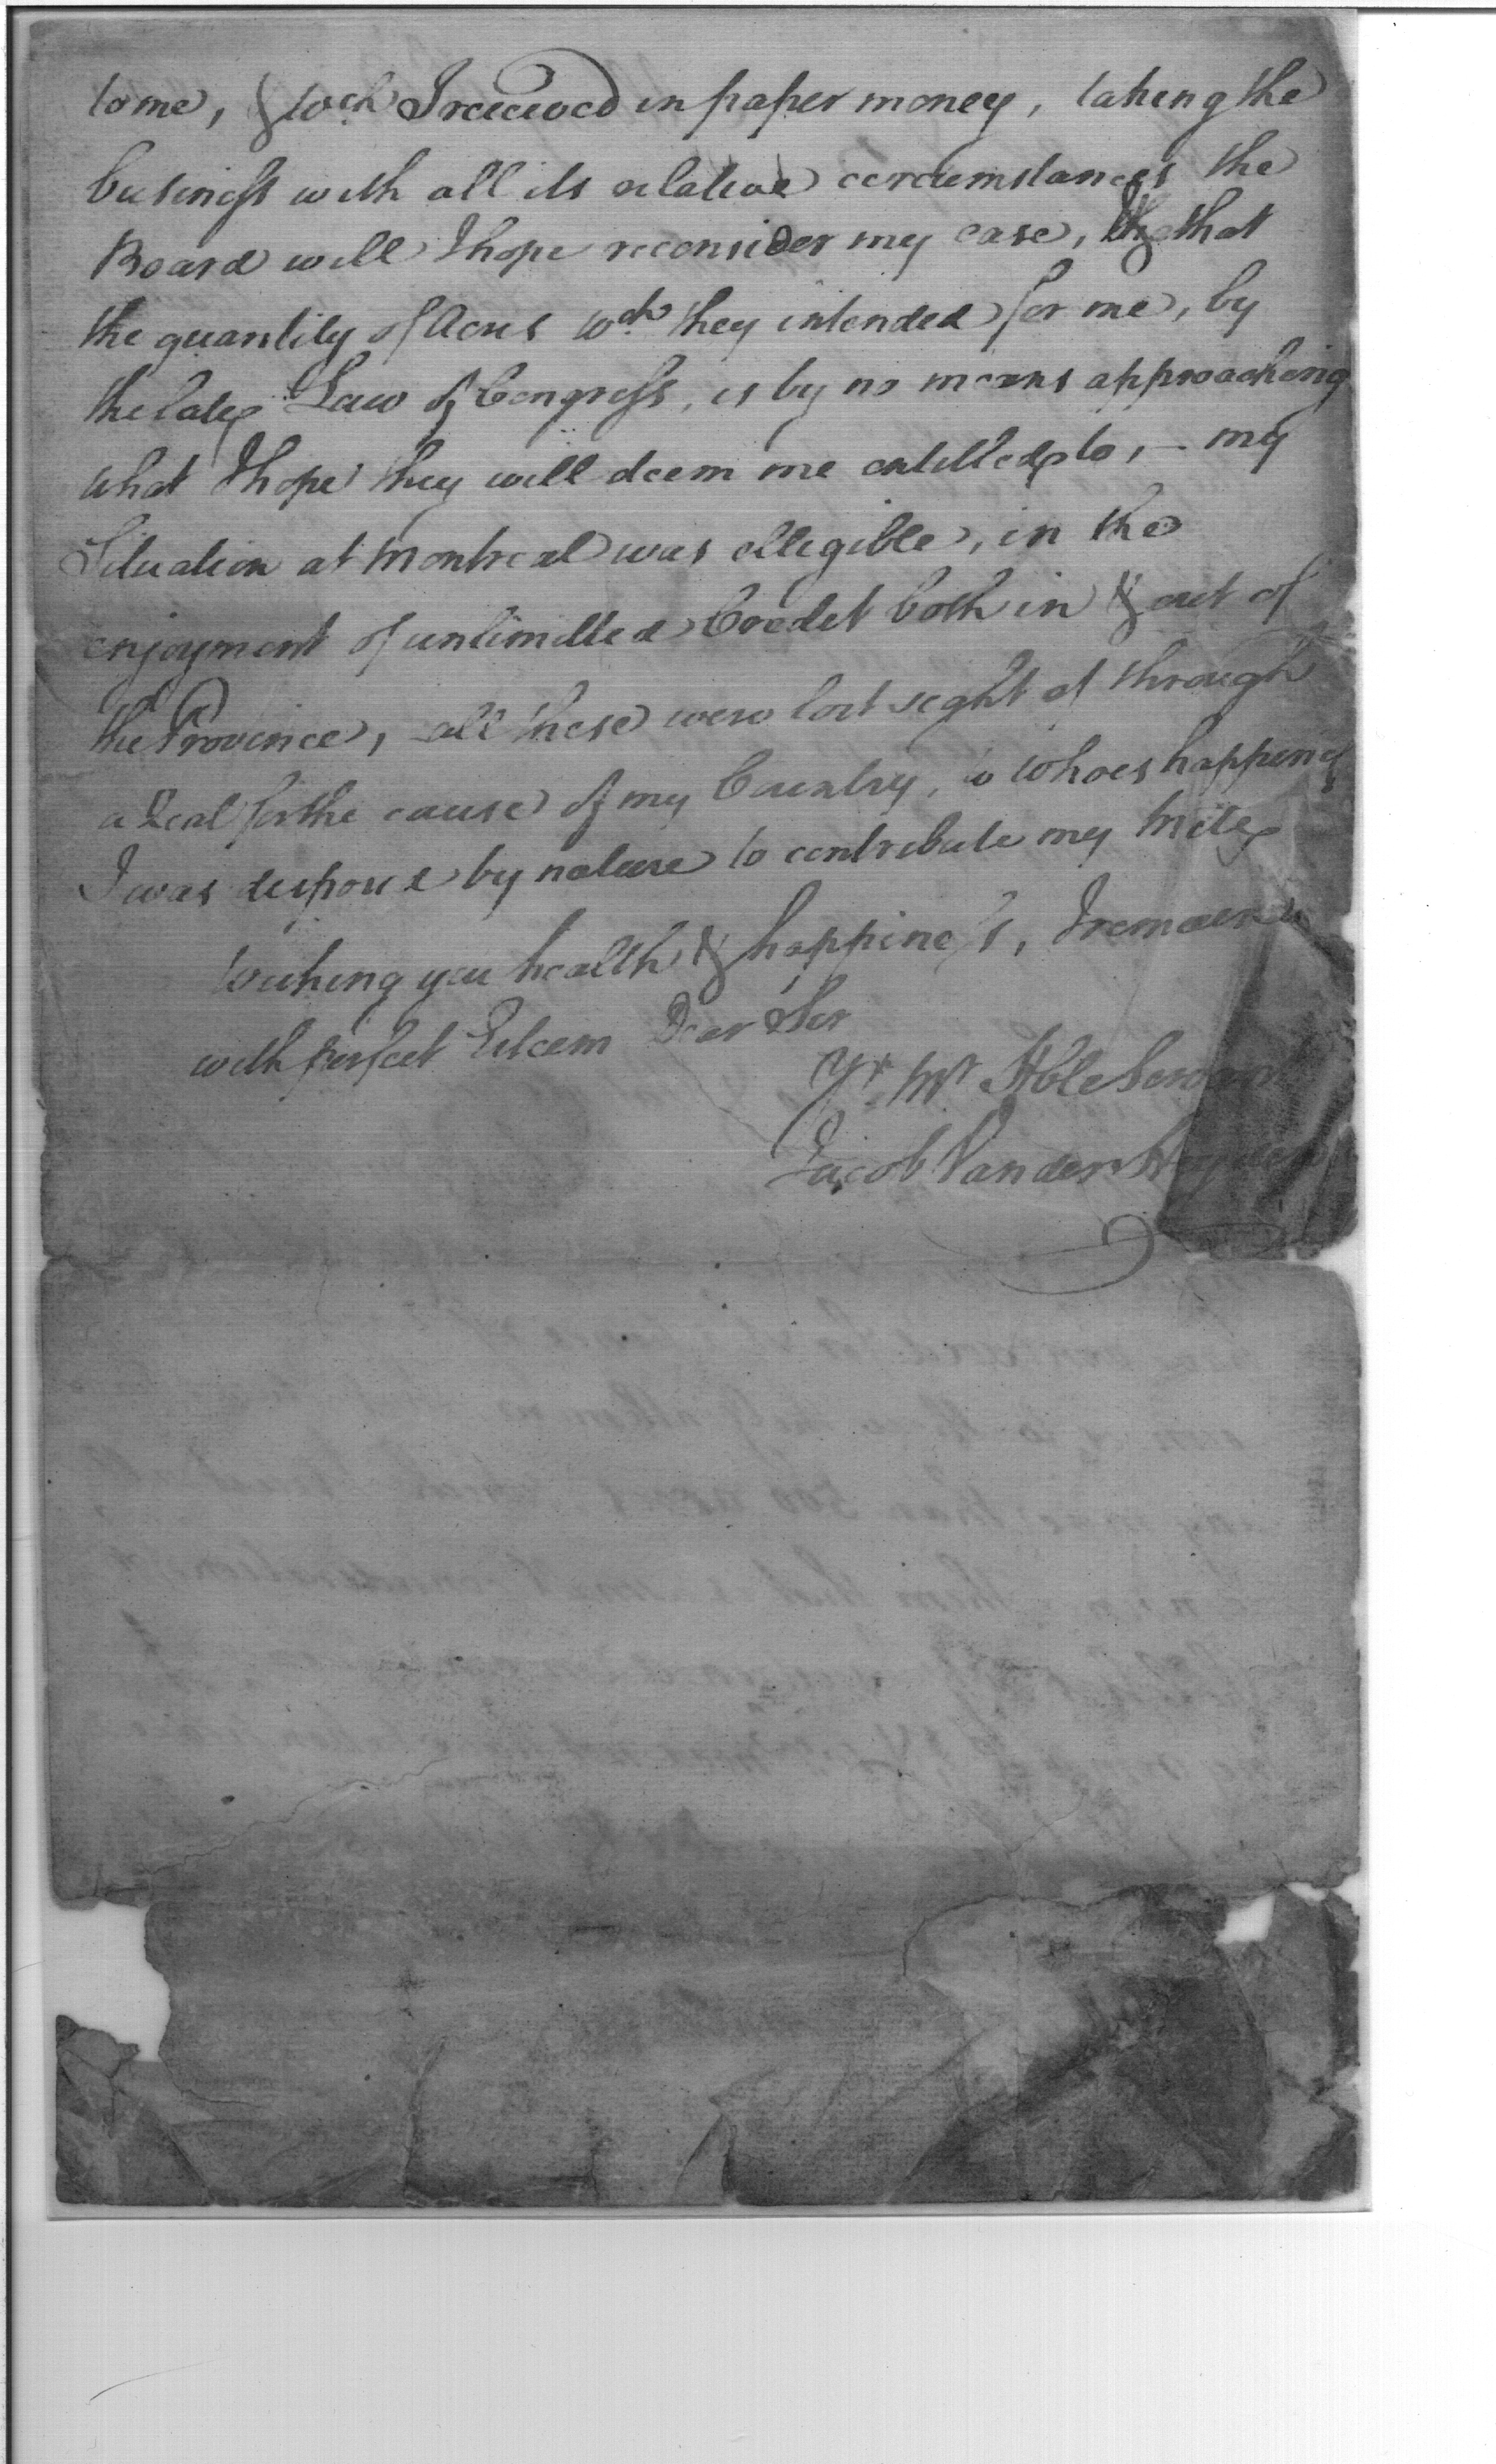 to me, & wch I received in paper money, taking the
business with all its relative circumstances the
Board will I hope reconsider my case, that
the quantity of Acres wch they intended for me, by
the late Law of Congress, is by no means approaching
what I hope they will deem me entitled to, — my
Situation at Montreal was ellegible, in the
enjoyment of unlimitted Credit both in & out of
the Province, all these were lost sight of through
a Zeal for the cause of my Country, to whoes happiness
I was dispose by nature to contribute my Mite
Wishing you health & happiness, I remain
with perfect Esteem Dear Sir
Yr. Mt Hble Servant
Jacob Vander Heyden